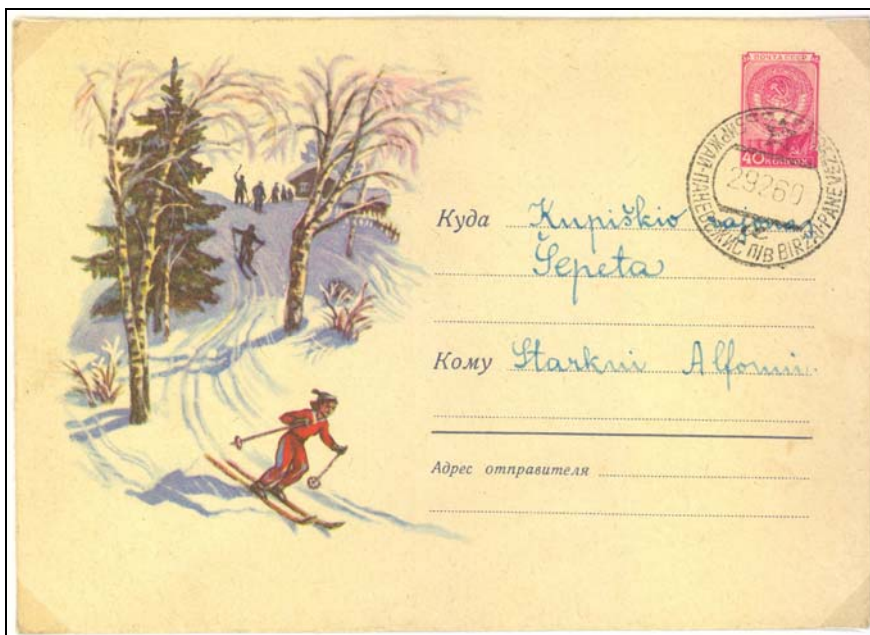 ПОЧТА СССР
40 КОПЕЕК
БИРЖАЙ-ПАНЕВЕЖИС П/В BIRZAI-PANEVEZ
29260
Куда Kupiškio rajonas
Šepeta
Кому Starkui Alfonsui
Адрес отправителя